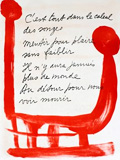 C'est tout dans le caleul
des songes
mentir pour plaire
sans faiblir
Il n'y aura jamais
plus de monde
Au détour pour nous
voir mourir